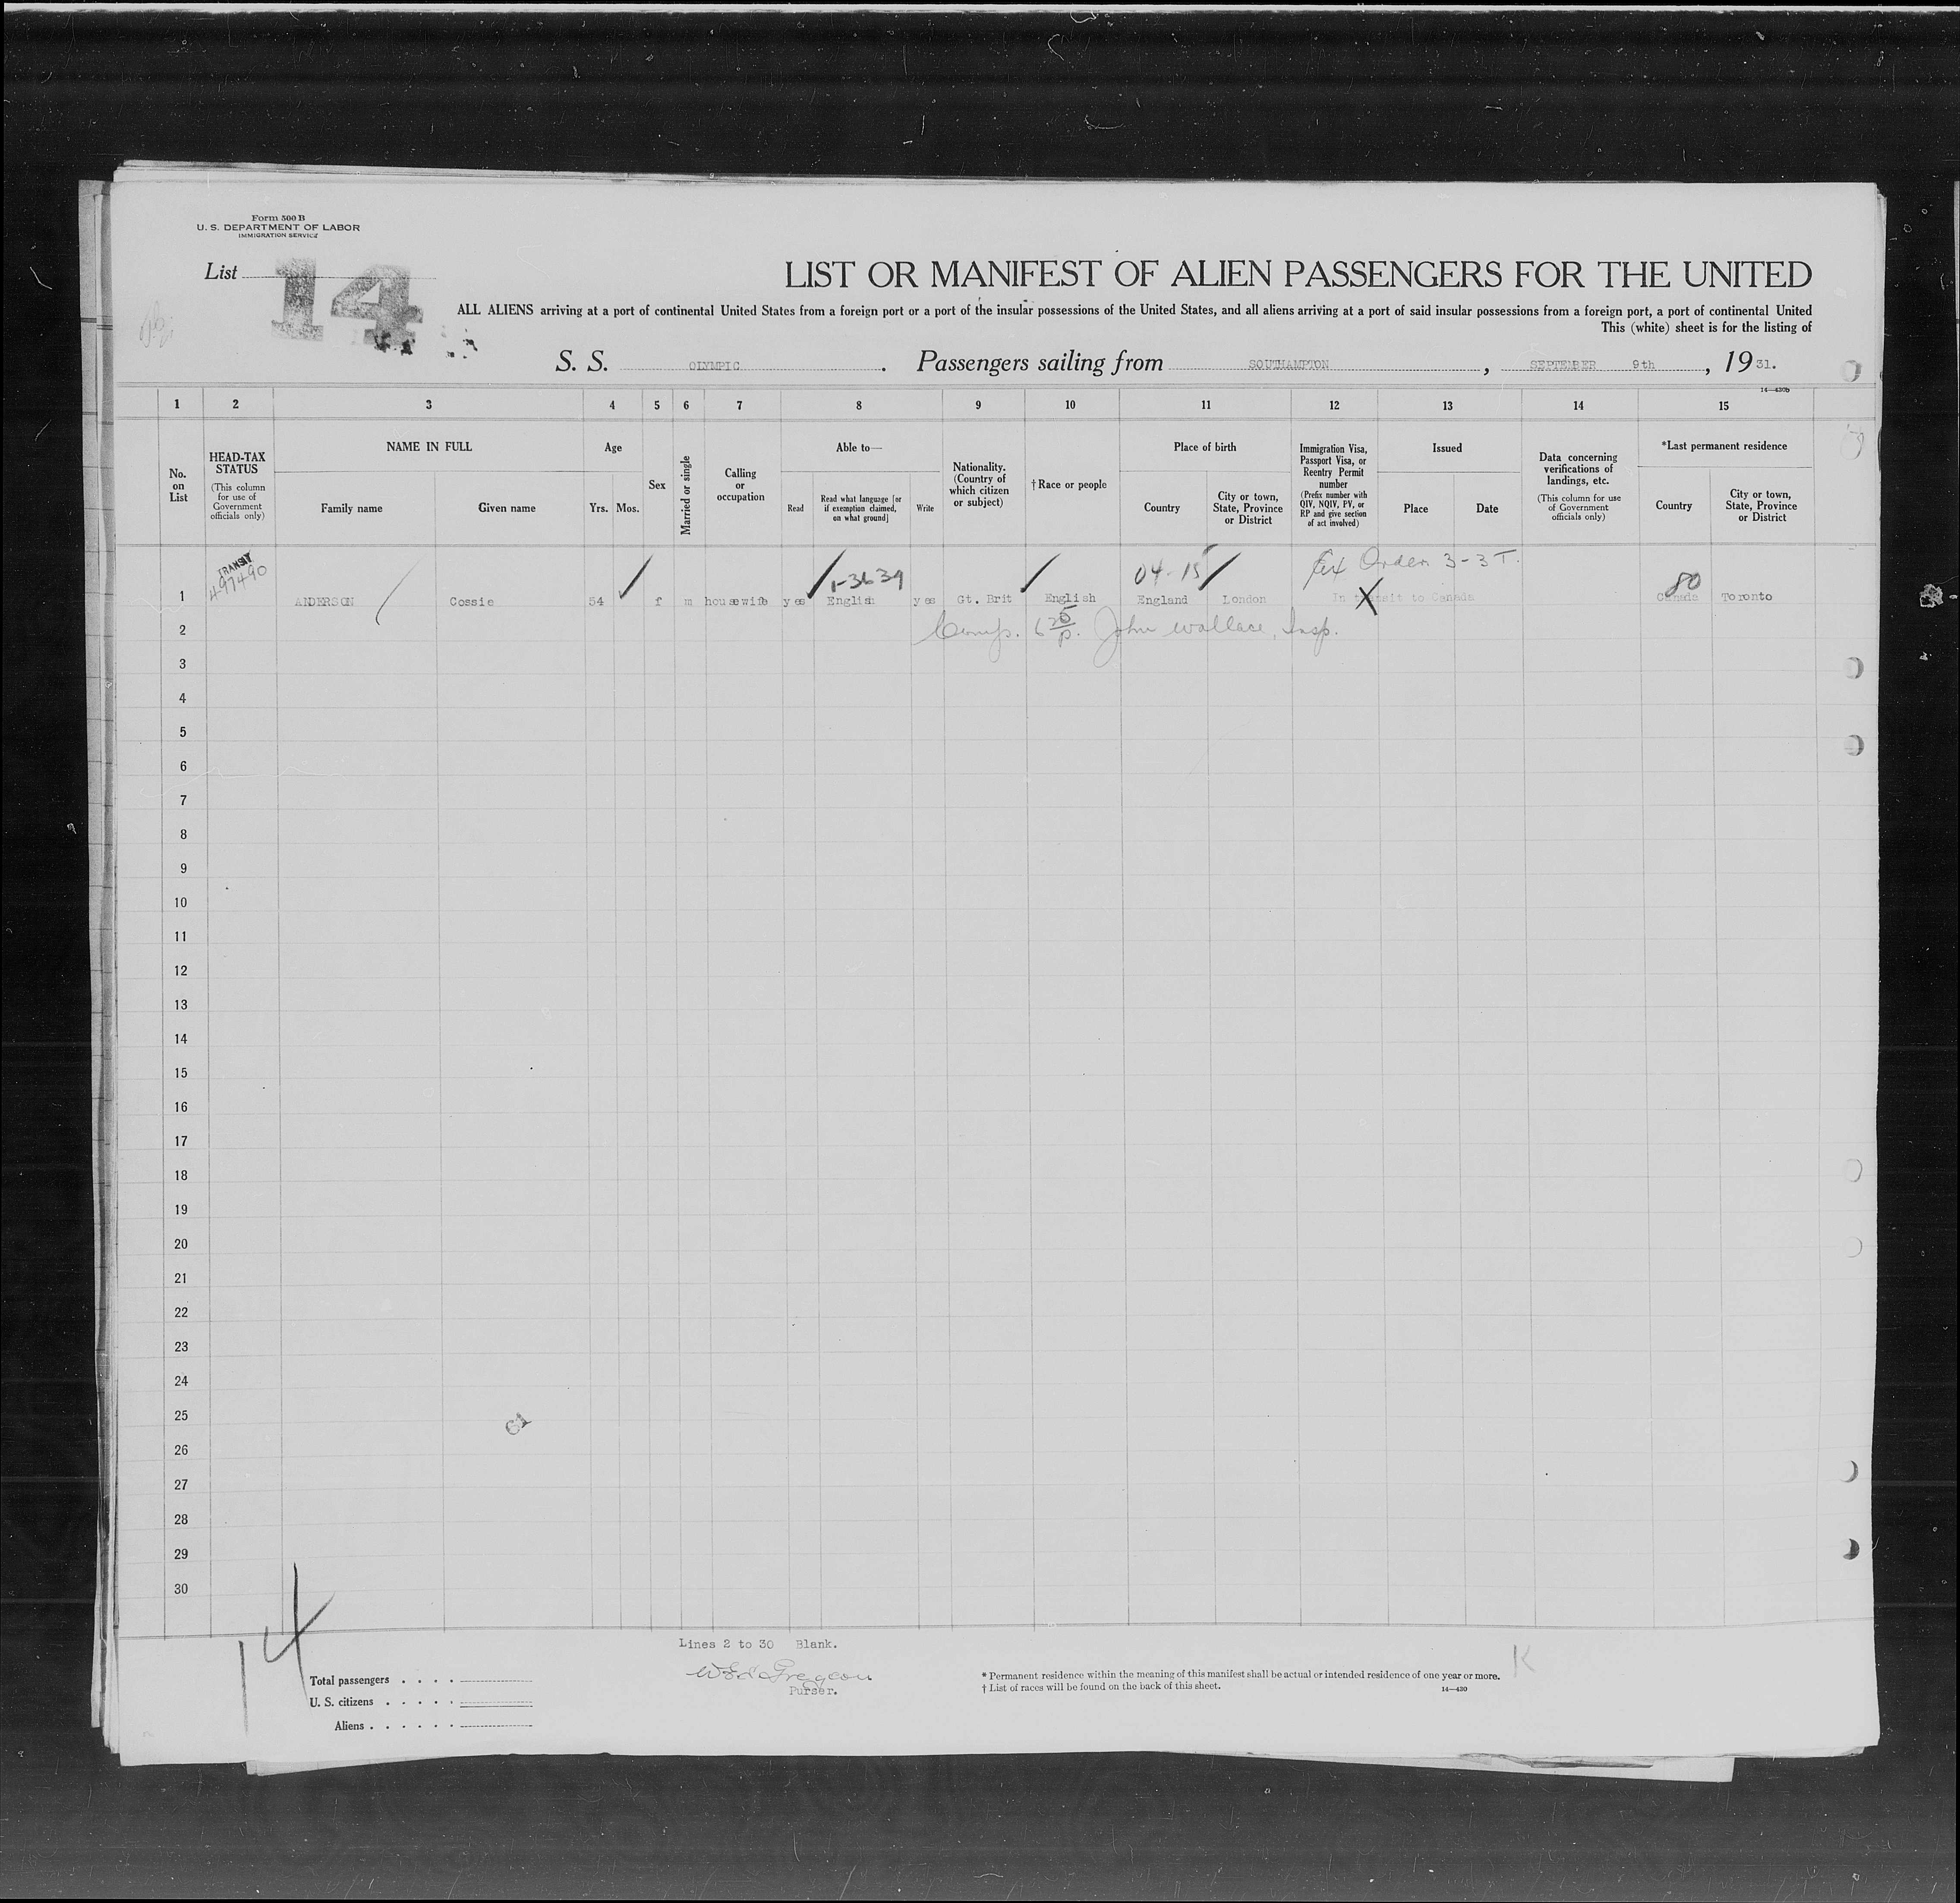 Form 500 B
U. S. DEPARTMENT OF LABOR
IMMIGRATION SERVICE
List 14
LIST OR MANIFEST OF ALIEN PASSENGERS FOR THE UNITED
ALL ALIENS arriving at a port of continental United States from a foreign port or a port of the insular possessions of the United States, and all aliens arriving at a port of said insular possessions from a foreign port, a port of continental United
This (white) sheet is for the listing of
S. S. OLYMPIC. Passengers sailing from SOUTHAMPTON, SEPTEMBER 9th, 1931.
14—430b
1 2 3 4 5 6 7 8 9 10 11 12 13 14 15
No. on List
HEAD-TAX STATUS (This column for use of Government officials only)
NAME IN FULL
Family name Given name
Age
Yrs. Mos.
Sex
Married or single
Calling or occupation
Able to—
Read Read what language [or if exemption claimed, on what ground] Write
Nationality. (Country of which citizen or subject)
† Race or people
Place of birth
Country City or town, State, Province or District
Immigration Visa, Passport Visa, or Reentry Permit number (Prefix number with QIV, NQIV, PV, or RP and give section of act involved)
Issued
Place Date
Data concerning verifications of landings, etc. (This column for use of Government officials only)
*Last permanent residence
Country City or town, State, Province or District
TRANSIT 1-3639 04-15 Ex Order 3-3 T. 80
497490
1 ANDERSON Cossie 54 f m housewife yes English yes Gt. Brit English England London In transit to Canada Canada Toronto
2 John Wallace, Insp.
3
4
5
6
7
8
9
10
11
12
13
14
15
16
17
18
19
20
21
22
23
24
25
26
27
28
29
30
14
Lines 2 to 30 Blank.
Purser.
Total passengers . . . .
U. S. citizens . . . . .
Aliens . . . . . .
* Permanent residence within the meaning of this manifest shall be actual or intended residence of one year or more.
† List of races will be found on the back of this sheet.
14—430
K